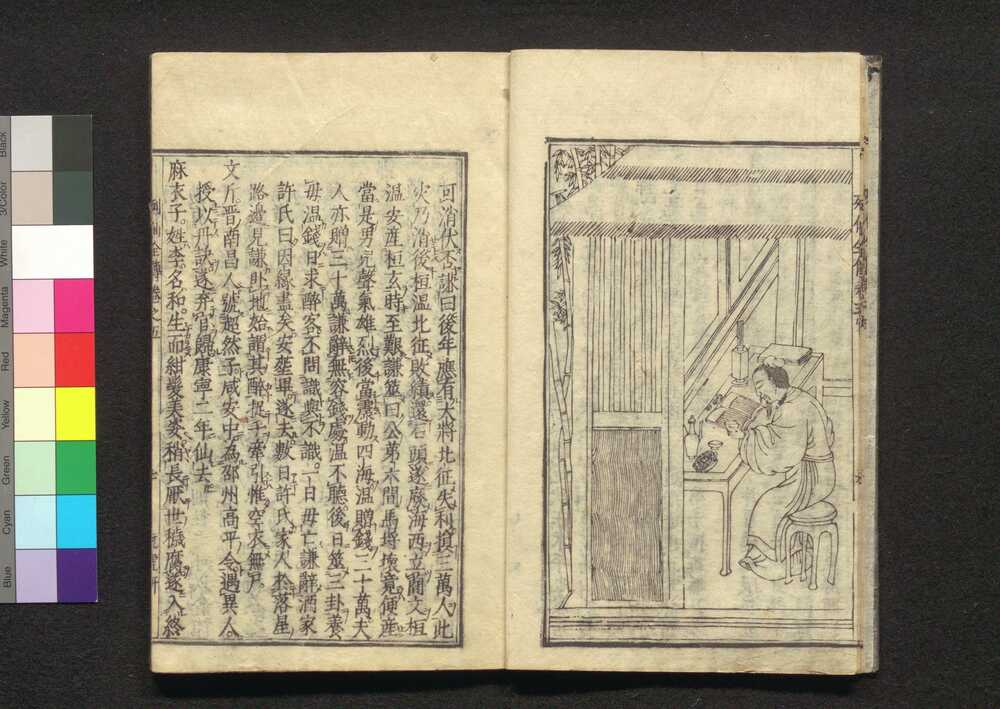 列仙全傳卷之五
可消伏否謙曰後年應有大將北征失利損三萬人此
火乃消後桓溫北征敗績還石頭遂廢海西立簡文桓
溫妾産桓玄時至艱謙筮曰公第六間馬埒壞竟便産
當是男兒聲氣雄烈後當震動四海溫贈錢二十萬夫
人亦贈三十萬謙辭無容錢處溫不聽後日筮三卦養
母溫錢日求醉客不問識與不識。一日毋亡謙辭酒家
許氏曰因緣盡矣安塟畢遂去數日許氏家人於落星
路邊見謙臥地始謂其醉捉手牽引惟空衣無尸。
文斤晋南昌人號超然子咸安中為邵州高平令遇異人
授以丹訣遂弃官歸康寧二年仙去
麻衣子。姓李名和。生而紺髮美姿稍長厭世穢腐遂入終
列仙全傳卷之五
Black
3/Color
White
Magenta
Red
Yellow
Green
Cyan
Blue